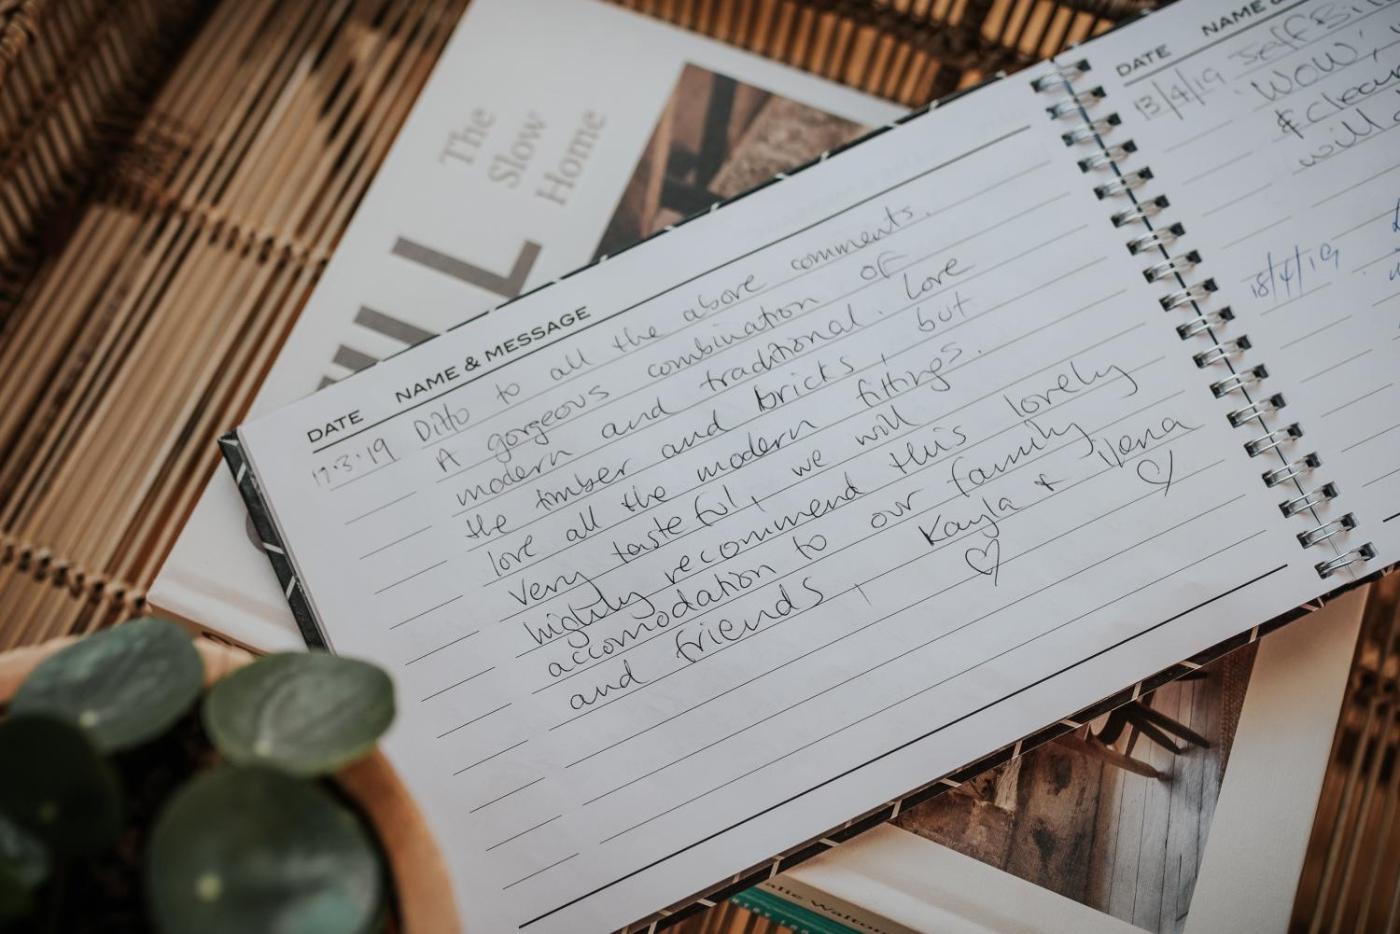 The
Slow
Home
DATE NAME & MESSAGE
17.3.19 Ditto to all the above comments.
A gorgeous combination of
modern and traditional. Love
the timber and bricks, but
love all the modern fittings.
Very tasteful, we will
highly recommend this lovely
accomodation to our family
and friends, Kayla & Ilena
DATE NAME &
13/4/19 Jeff
WOW!
&
will
18/4/19
Walton